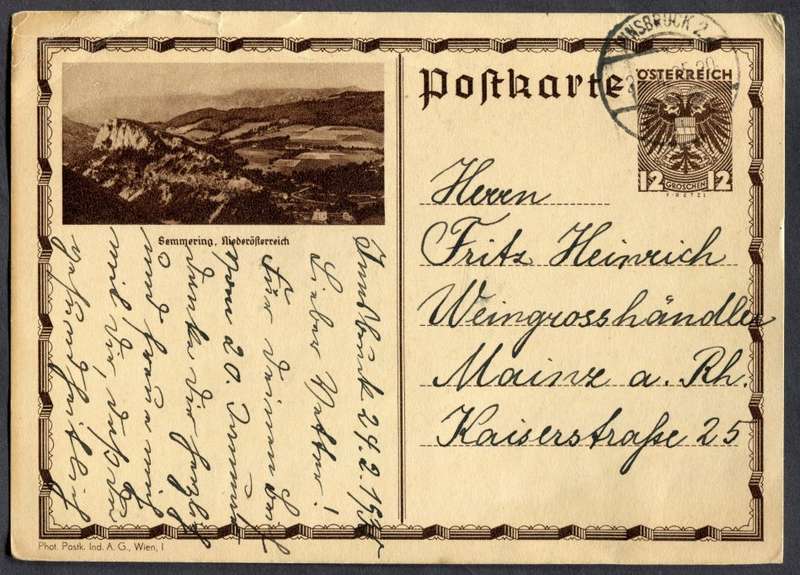 Postkarte
INNSBRUCK 2
ÖSTERREICH
12 GROSCHEN 12
Herrn
Fritz Heinrich
Weingrosshändler
Mainz a. Rh.
Kaiserstraße 25
Semmering, Niederösterreich
Innsbruck 24.2.
Lieber Vetter!
Für Deinen
vom 20.
danke Dir herzlich
und freue mich
mit Dir, daß Du
gesundheitlich
Phot. Postk. Ind. A. G., Wien, I